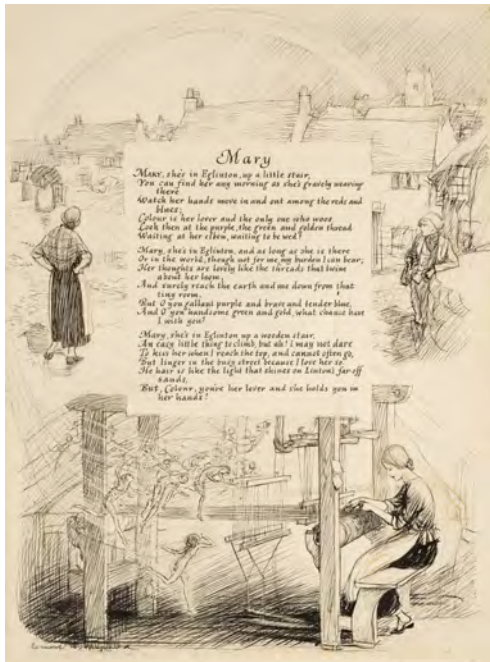 Mary
Mary, she's in Eglinton, up a little stair,
You can find her any morning as she's gravely weaving
there
Watch her hands move in and out among the reds and
blues;
Colour is her lover and the only one who woos
Look then at the purple, the green and golden thread
Waiting at her elbow, waiting to be wed!
Mary, she's in Eglinton, and as long as she is there
Or in the world, though not for me, my burden I can bear;
Her thoughts are lovely like the threads that twine
about her loom,
And surely reach the earth and me down from that
tiny room.
But O you gallant purple and brave and tender blue,
And O you handsome green and gold, what chance have
I with you?
Mary, she's in Eglinton up a wooden stair,
An easy little thing to climb, but ah! I may not dare
To kiss her when I reach the top, and cannot often go,
But linger in the busy street because I love her so
He hair is like the light that shines on Linton's far off
sands,
But, Colour, you're her lover and she holds you in
her hands!